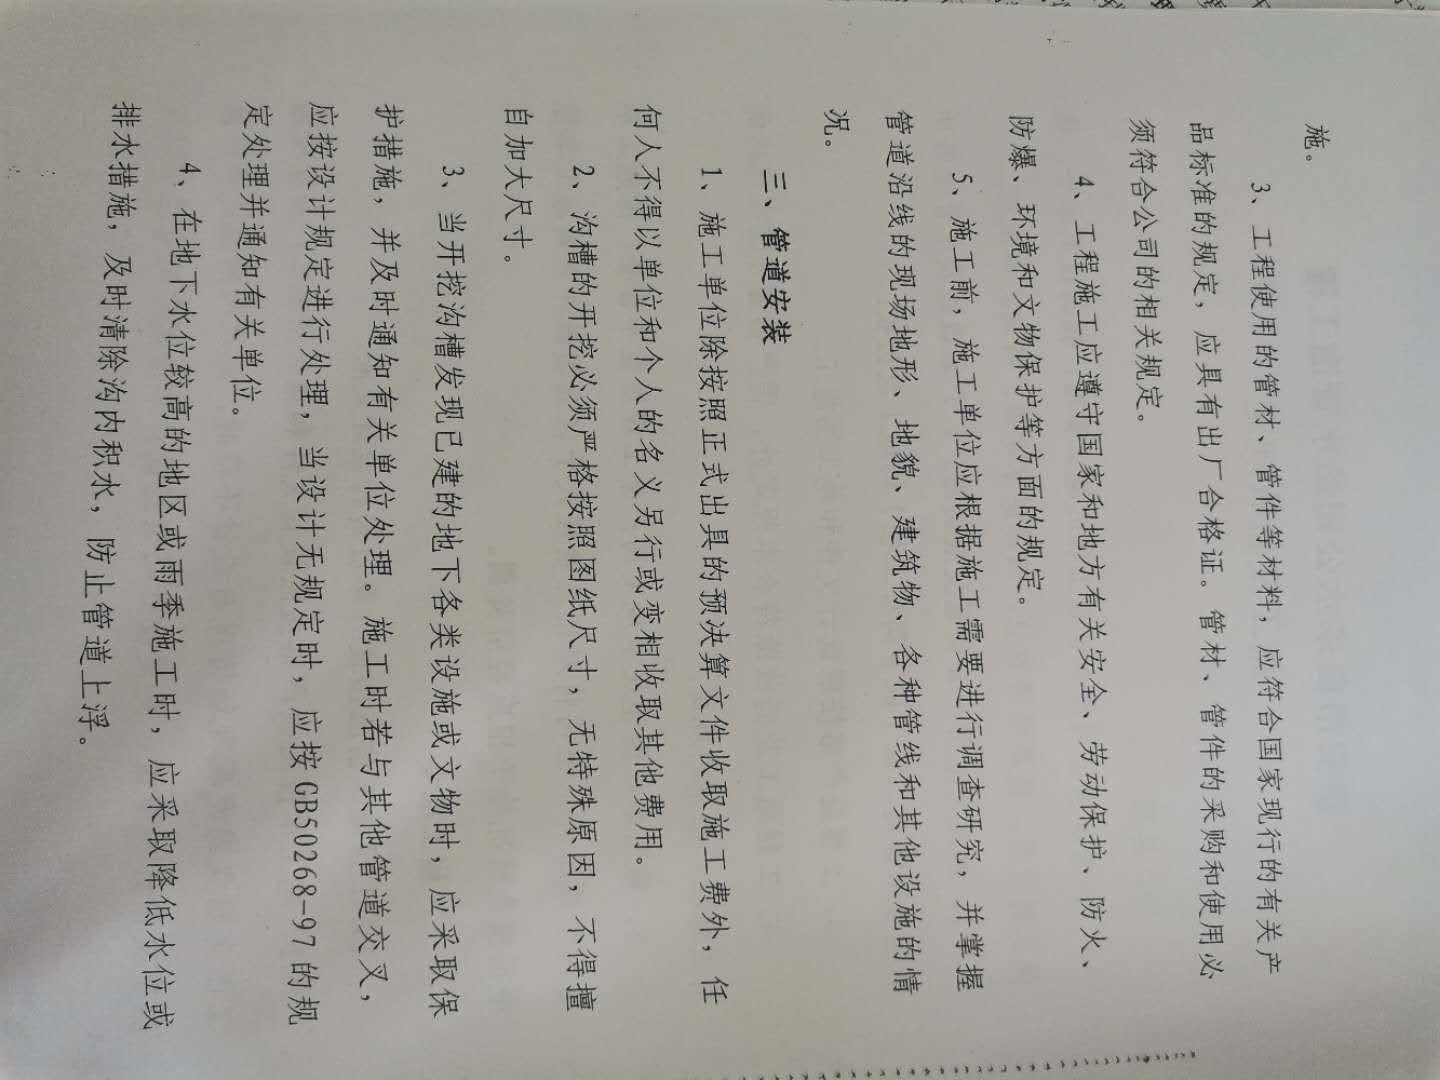 施。
3、工程使用的管材、管件等材料，应符合国家现行的有关产
品标准的规定，应具有出厂合格证。管材、管件的采购和使用必
须符合公司的相关规定。
4、工程施工应遵守国家和地方有关安全、劳动保护、防火、
防爆、环境和文物保护等方面的规定。
5、施工前，施工单位应根据施工需要进行调查研究，并掌握
管道沿线的现场地形、地貌、建筑物、各种管线和其他设施的情
况。
三、管道安装
1、施工单位除按照正式出具的预决算文件收取施工费外，任
何人不得以单位和个人的名义另行或变相收取其他费用。
2、沟槽的开挖必须严格按照图纸尺寸，无特殊原因，不得擅
自加大尺寸。
3、当开挖沟槽发现已建的地下各类设施或文物时，应采取保
护措施，并及时通知有关单位处理。施工时若与其他管道交叉，
应按设计规定进行处理，当设计无规定时，应按GB50268-97的规
定处理并通知有关单位。
4、在地下水位较高的地区或雨季施工时，应采取降低水位或
排水措施，及时清除沟内积水，防止管道上浮。